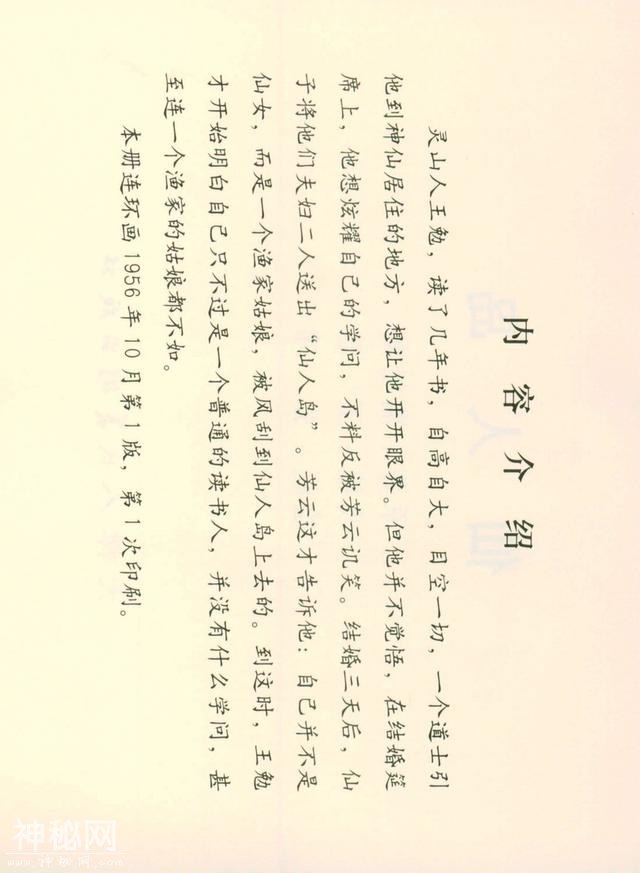 内容介绍
灵山人王勉，读了几年书，自高自大，目空一切，一个道士引
他到神仙居住的地方，想让他开开眼界。但他并不觉悟，在结婚筵
席上，他想炫耀自己的学问，不料反被芳云讥笑。结婚三天后，仙
子将他们夫妇二人送出“仙人岛”。芳云这才告诉他：自己并不是
仙女，而是一个渔家姑娘，被风刮到仙人岛上去的。到这时，王勉
才开始明白自己只不过是一个普通的读书人，并没有什么学问，甚
至连一个渔家的姑娘都不如。
本册连环画1956年10月第1版，第1次印刷。
仙人岛
神秘网